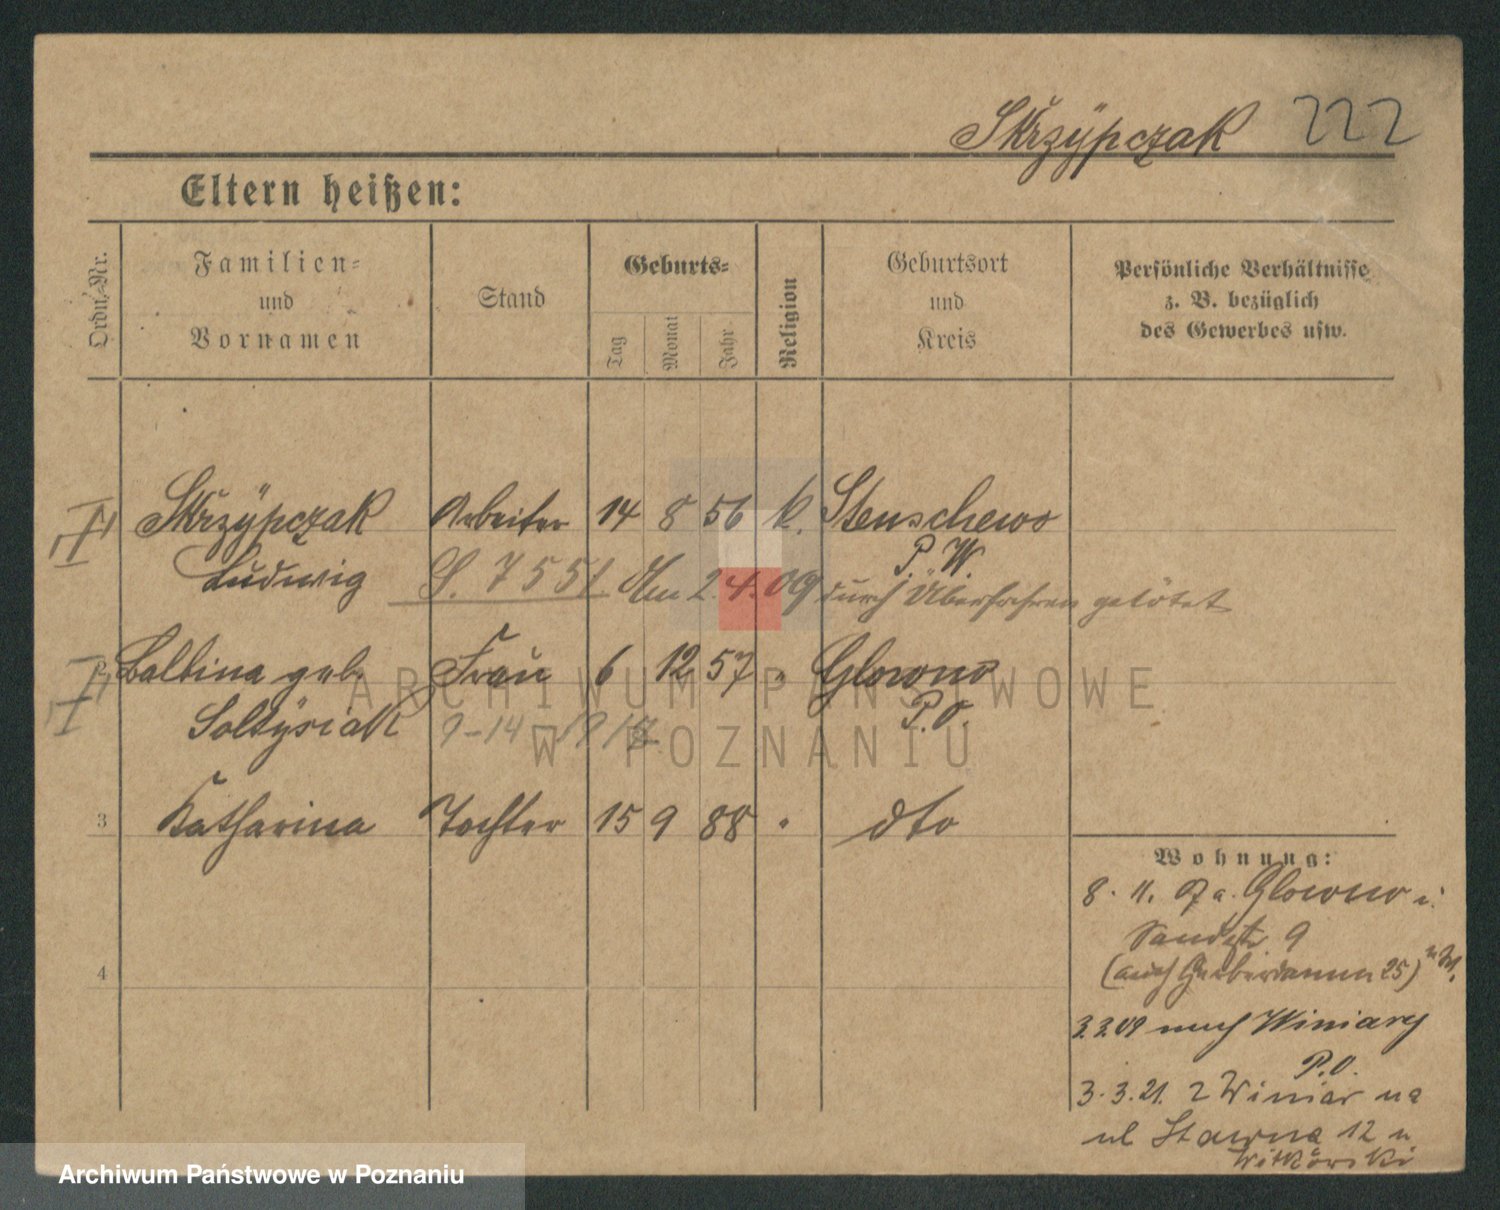 Skrzÿpczak 222
Eltern heißen:
Ordn.-Nr.
Familien-
und
Vornamen
Stand
Geburts-
Tag
Monat
Jahr
Religion
Geburtsort
und
Kreis
Persönliche Verhältnisse
z. B. bezüglich
des Gewerbes usw.
Skrzÿpczak Arbeiter 14 8 56 k. Stenschewo
P. W.
Ludwig S. 7551 Am 2.4.09 durch Überfahren getötet
Balbina geb. Frau 6 12 57 " Glowno
Soltÿsiak 9-14 P.O.
3 Katharina Tochter 15 9 88 " dto
Wohnung:
8. 11. 07 a. Glowno i.
Sandstr 9
(auch Gerberdamm 25)
4
3.3.09 nach Winiary
P.O.
3.3.21. z Winiar na
ul Stawna 12 u
Witkowski
ARCHIWUM PAŃSTWOWE
W POZNANIU
Archiwum Państwowe w Poznaniu